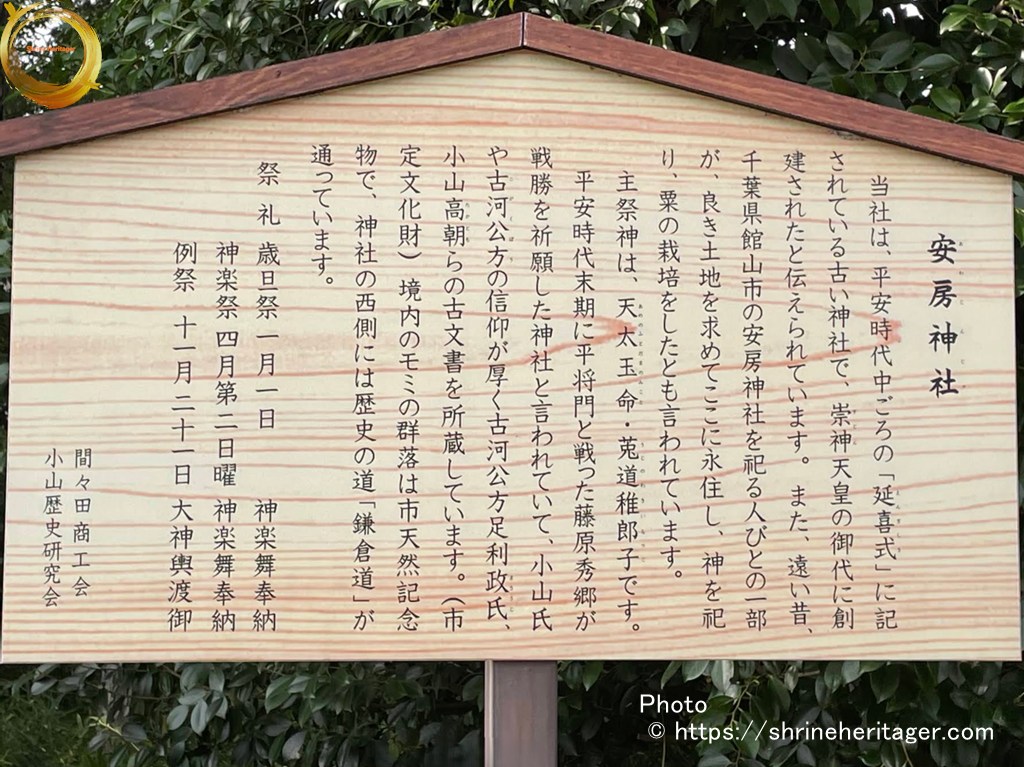 安房神社
当社は、平安時代中ごろの「延喜式」に記
されている古い神社で、崇神天皇の御代に創
建されたと伝えられています。また、遠い昔、
千葉県館山市の安房神社を祀る人びとの一部
が、良き土地を求めてここに永住し、神を祀
り、粟の栽培をしたとも言われています。
主祭神は、天太玉命・莵道稚郎子です。
平安時代末期に平将門と戦った藤原秀郷が
戦勝を祈願した神社と言われていて、小山氏
や古河公方の信仰が厚く古河公方足利政氏、
小山高朝らの古文書を所蔵しています。(市
定文化財) 境内のモミの群落は市天然記念
物で、神社の西側には歴史の道「鎌倉道」が
通っています。
祭礼 歳旦祭 一月一日 神楽舞奉納
神楽祭 四月第二日曜 神楽舞奉納
例祭 十一月二十一日 大神輿渡御
間々田商工会
小山歴史研究会
Photo
© https://shrineheritager.com